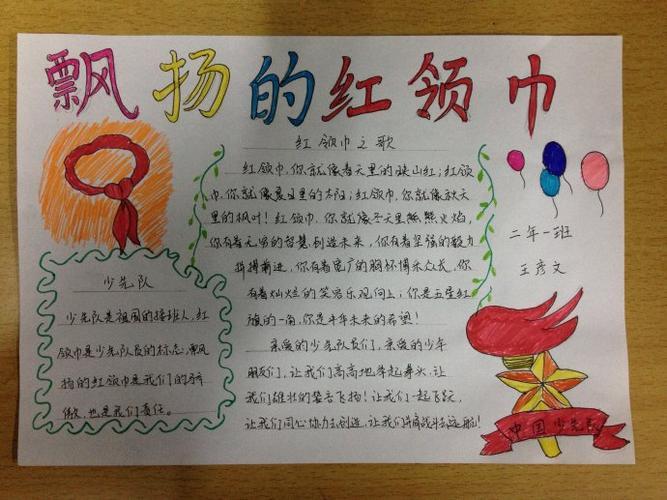 飘扬的红领巾
红领巾之歌
红领巾,你就像春天里的映山红;红领
巾,你就像夏日里的太阳;红领巾,你就像秋天
里的枫叶!红领巾,你就像冬天里熊熊火焰,
你有着无穷的智慧创造未来,你有着坚强的毅力
拼搏前进,你有着宽广的胸怀博采众长,你
有着灿烂的笑容乐观向上;你是五星红
旗的一角,你是中华未来的希望!
亲爱的少先队员们,亲爱的少年
朋友们,让我们高高地举起拳头,让
我们雄壮的誓言飞扬!让我们一起飞跃,
让我们同心协力去创造,让我们拼搏战斗去远航!
少先队
少先队是祖国的接班人,红
领巾是少先队员的标志,飘
扬的红领巾是我们的骄
傲,也是我们责任。
二年一班
王彦文
中国少先队